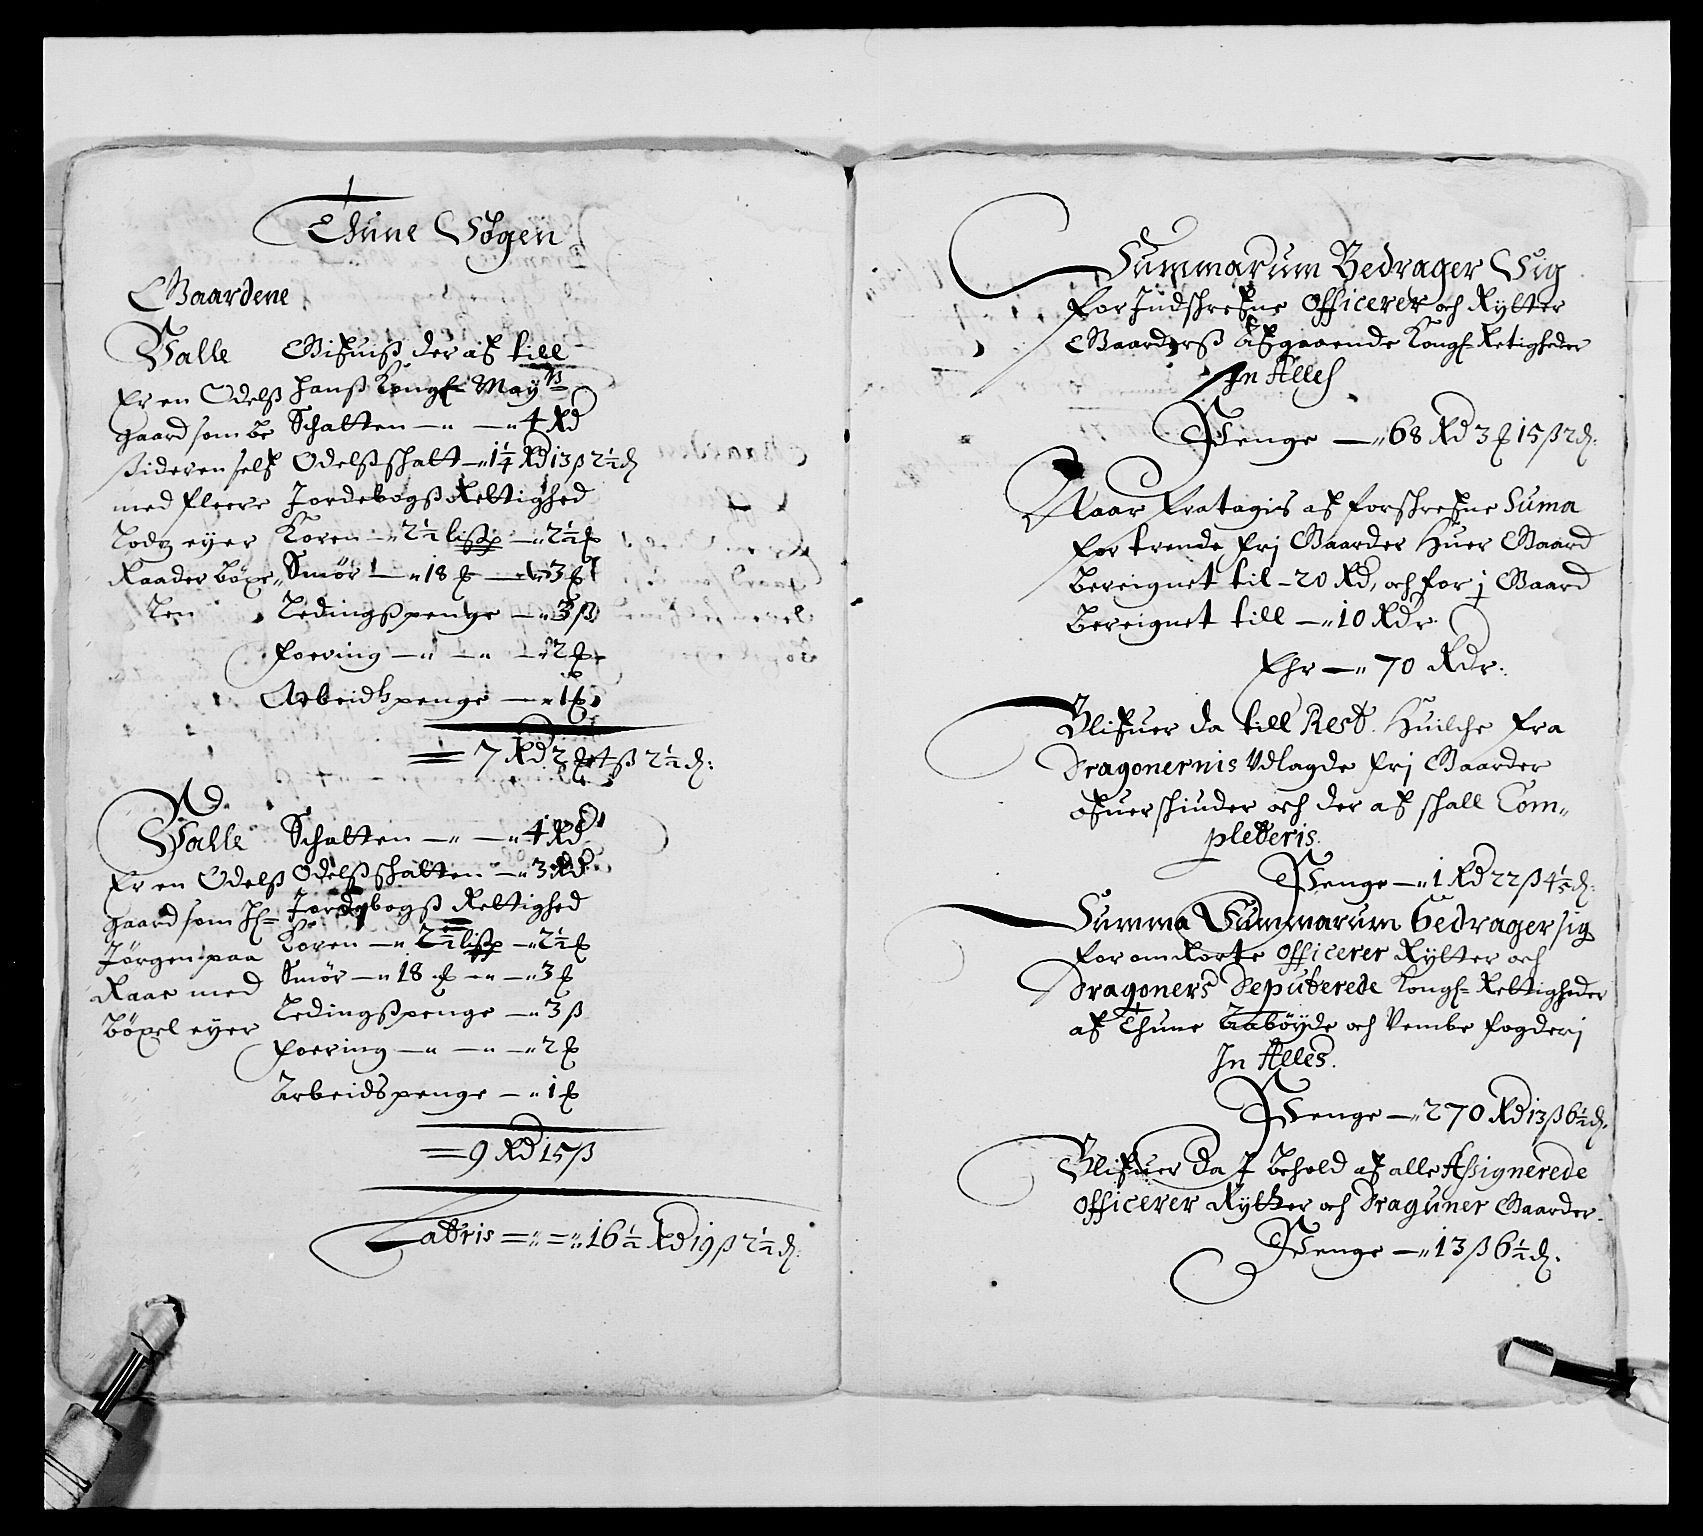 Thune Sogen
Gaardene
Valle Gifuis der af till
Er en Odelß hanß Kongl May.tt
gaard som be Schatten — 4 Rd
sideren self Odelßschatt — 1 1/4 Rd 13 ß 2 1/2 d
med fleere Jordebogß Rettighed
Lodz eyer Koren — 2 1/2 lißp — 2 1/2
Raader böxe Smör — 18 — 3
len Ledingßpenge — 3 ß
foering — 2
Arbeidtzpenge — 1
7 Rd 2 ß 2 1/2 d:
Nd.
Valle Schatten — 4 Rd
Er en Odelß Odelßschatten — 3 Rd
gaard som H: Jordebogß Rettighed
Jörgen paa Koren — 2 1/2 lißp — 2 1/2
Raae med Smör — 18 — 3
böxel eyer Ledingßpenge — 3 ß
foering — 2
Arbeidspenge — 1
9 Rd 15 ß
Latris 16 1/2 Rd 19 ß 2 1/2 d:
Summarum Bedrager Sig
for Indschrefne Officerer och Rytter
Gaarderß Afgaaende Kongl Retigheder
In Alles
Penge — 68 Rd 3 15 ß 2 d:
Naar fratagis af forschrefne Suma
for trende frj Gaarder huer Gaard
bereignet til — 20 Rd, och for j Gaard
bereignet till — 10 Rdr
Ehr — 70 Rdr:
Blifuer da till Rest. Huilche fra
Dragonernis Udlagde frj Gaarder
ofuerschiuder och der af schall Com„
pleteris.
Penge — 1 Rd 22 ß 4 1/2 d:
Summa Summarum bedrager sig
for om Rørte Officerer Rytter och
Dragoners Deputerede Kongl Rettigheder
af Thune Aabøyde och Vembe fogderj
In Alles.
Penge — 270 Rd 13 ß 6 1/2 d.
Blifuer da I behold af alle Aßignerede
Officerer Rytter och Draguner Gaarder.
Penge — 13 ß 6 1/2 d.